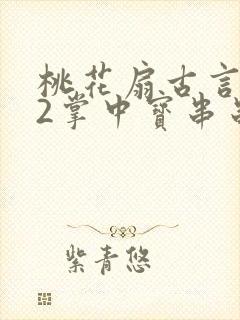 桃花扇古言
2掌中寳串
紫青悠